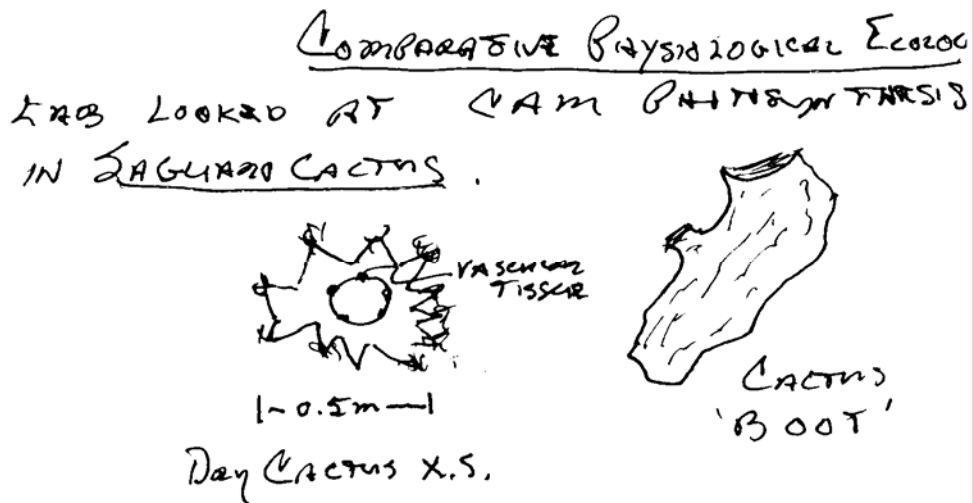 COMPARATIVE PHYSIOLOGICAL ECOLOG
LAB LOOKED AT CAM PHOTOSYNTHESIS
IN SAGUARO CACTUS.
VASCULAR
TISSUE
|~0.5m—|
Day CACTUS X.S.
CACTUS
'BOOT'